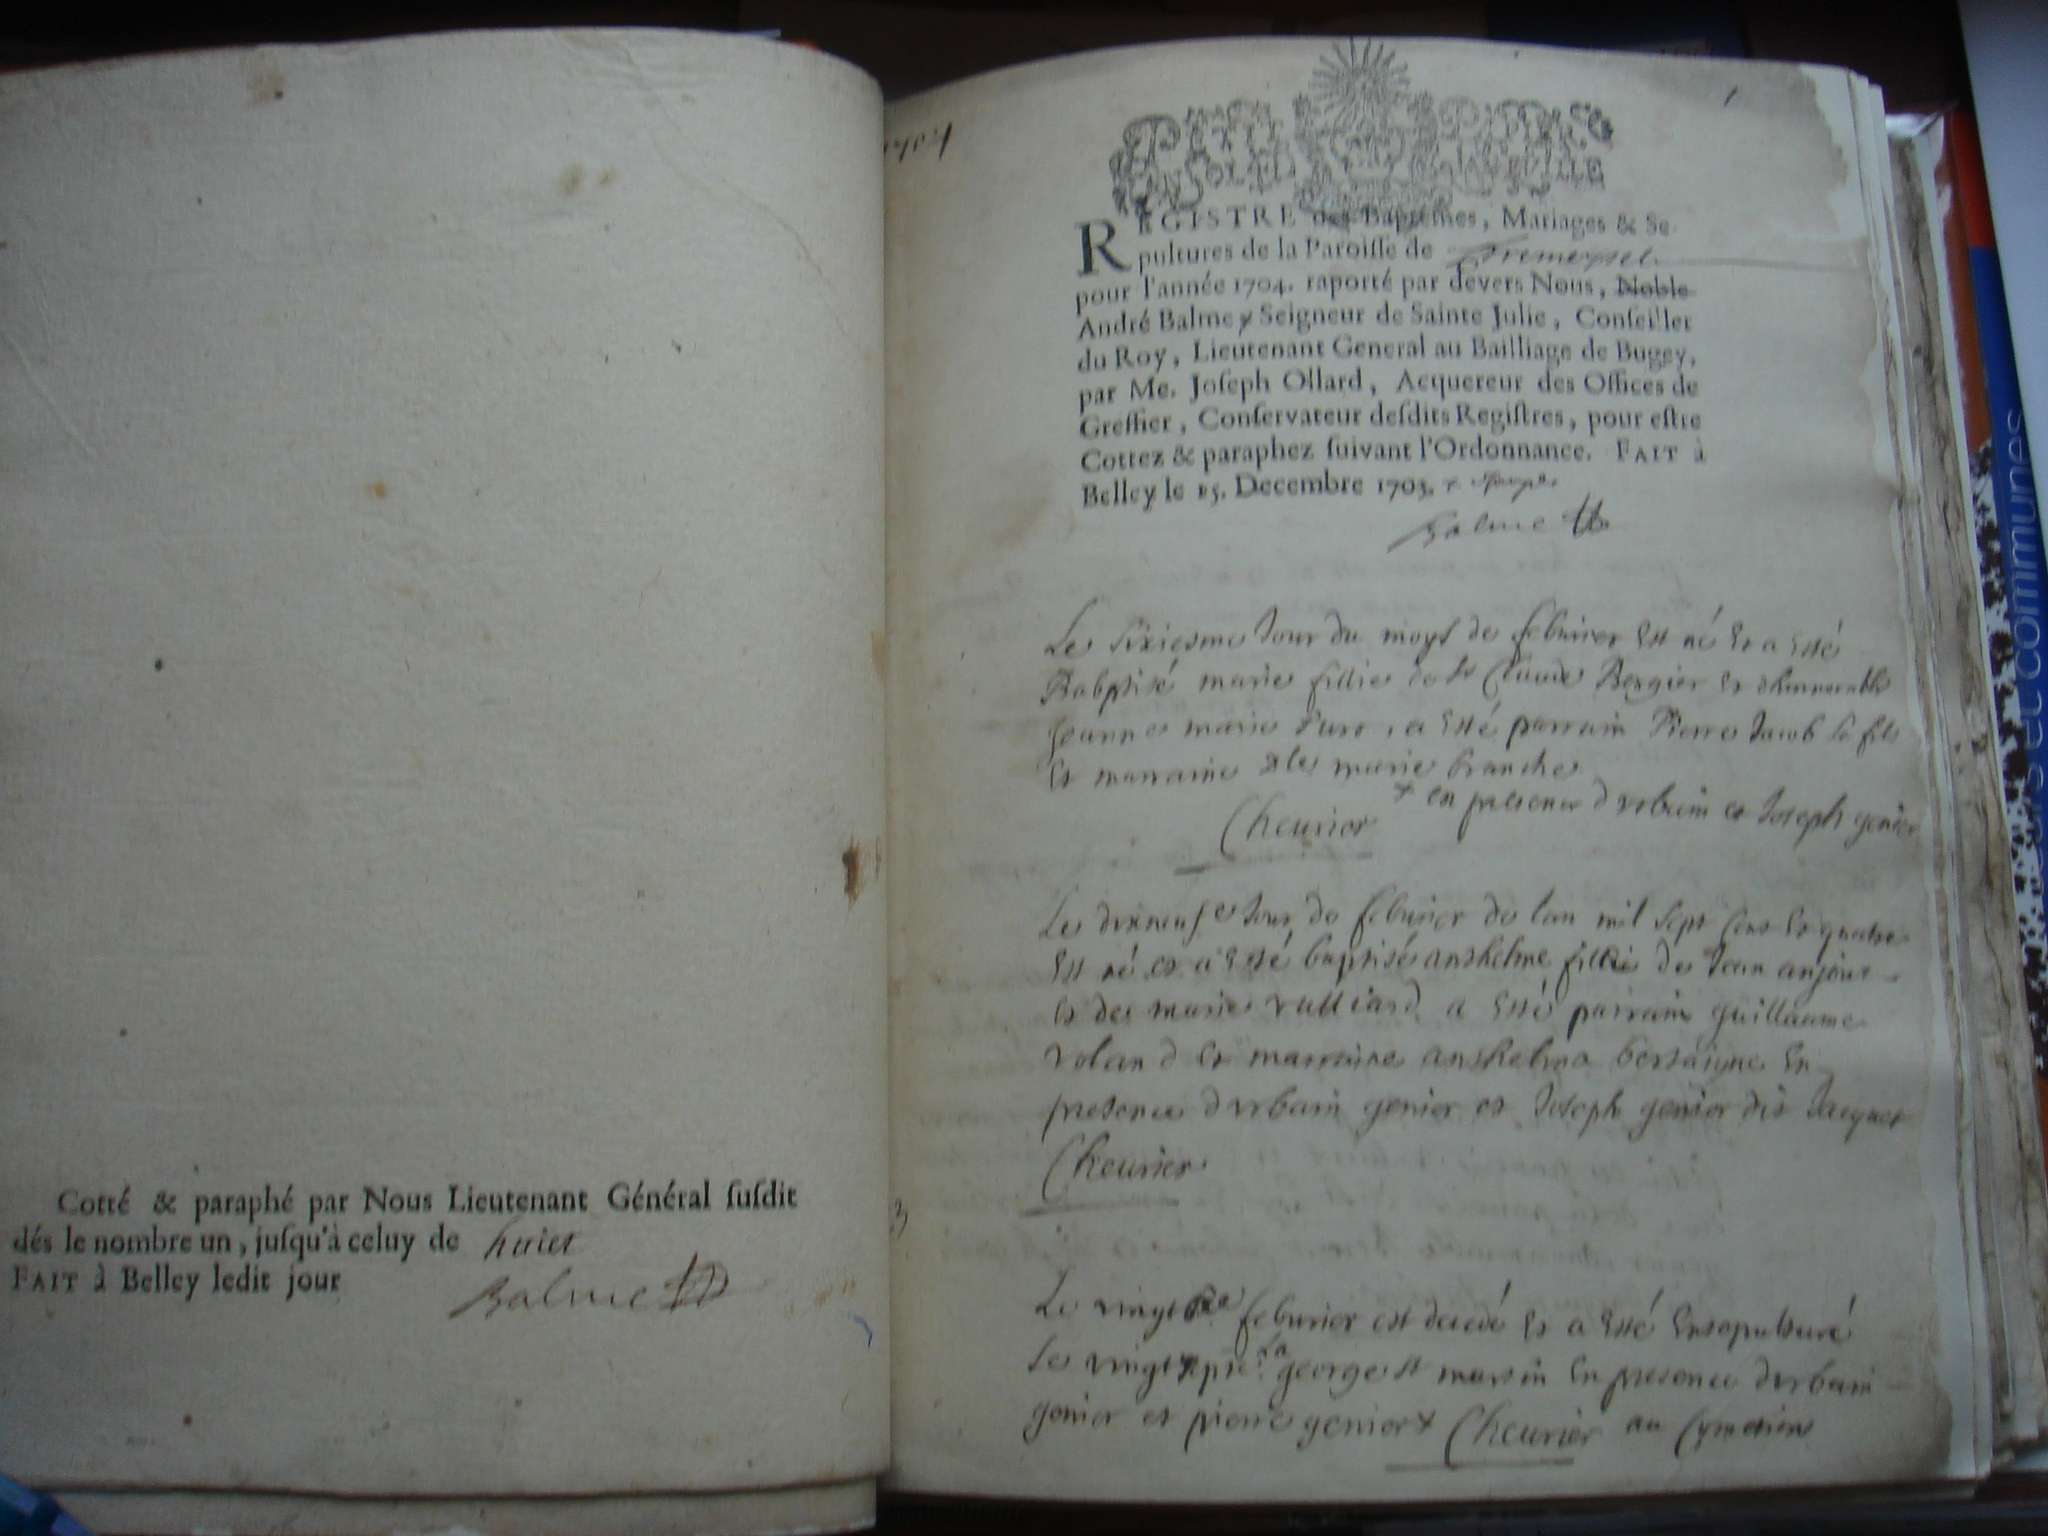 Cotté & paraphé par Nous Lieutenant Général suſdit
dés le nombre un, juſqu'à celuy de huict
FAIT à Belley ledit jour
Balme
1704
1
PETIT PAPIER
REGISTRE des Baptêmes, Mariages & Se-
pultures de la Paroiſſe de
pour l'année 1704. raporté par devers Nous, Noble
André Balme Seigneur de Sainte Julie, Conſeiller
du Roy, Lieutenant General au Bailliage de Bugey,
par Me. Joſeph Ollard, Acquereur des Offices de
Greffier, Conſervateur deſdits Regiſtres, pour eſtre
Cottez & paraphez ſuivant l'Ordonnance. FAIT à
Belley le 15. Decembre 1703.
Balme
Le sixiesme Jour du moys de feburier Est né Et a Esté
Babptisé marie fillie de Sr Claude Bergier Et
Jeanne marie a Esté parrain Pierre Jacob le fils
Et marraine dlle marie branche
x en presence d vrbain et Joseph genier
Cheurier
Le dixneuf e Jour de feburier de lan mil sept cens Et quatre
Est né et a Esté baptisé anthelme fillie de Jean
Et de marie vulliard a Esté parrain guillaume
voland Et marraine anthelma En
presence d vrbain genier et Joseph genier dit Jacquet
Cheurier
Le vingt feburier est decedé Et a Esté Ensepulturé
le george st martin En presence d vrbain
genier et pierre genier x Cheurier au
eurs et communes